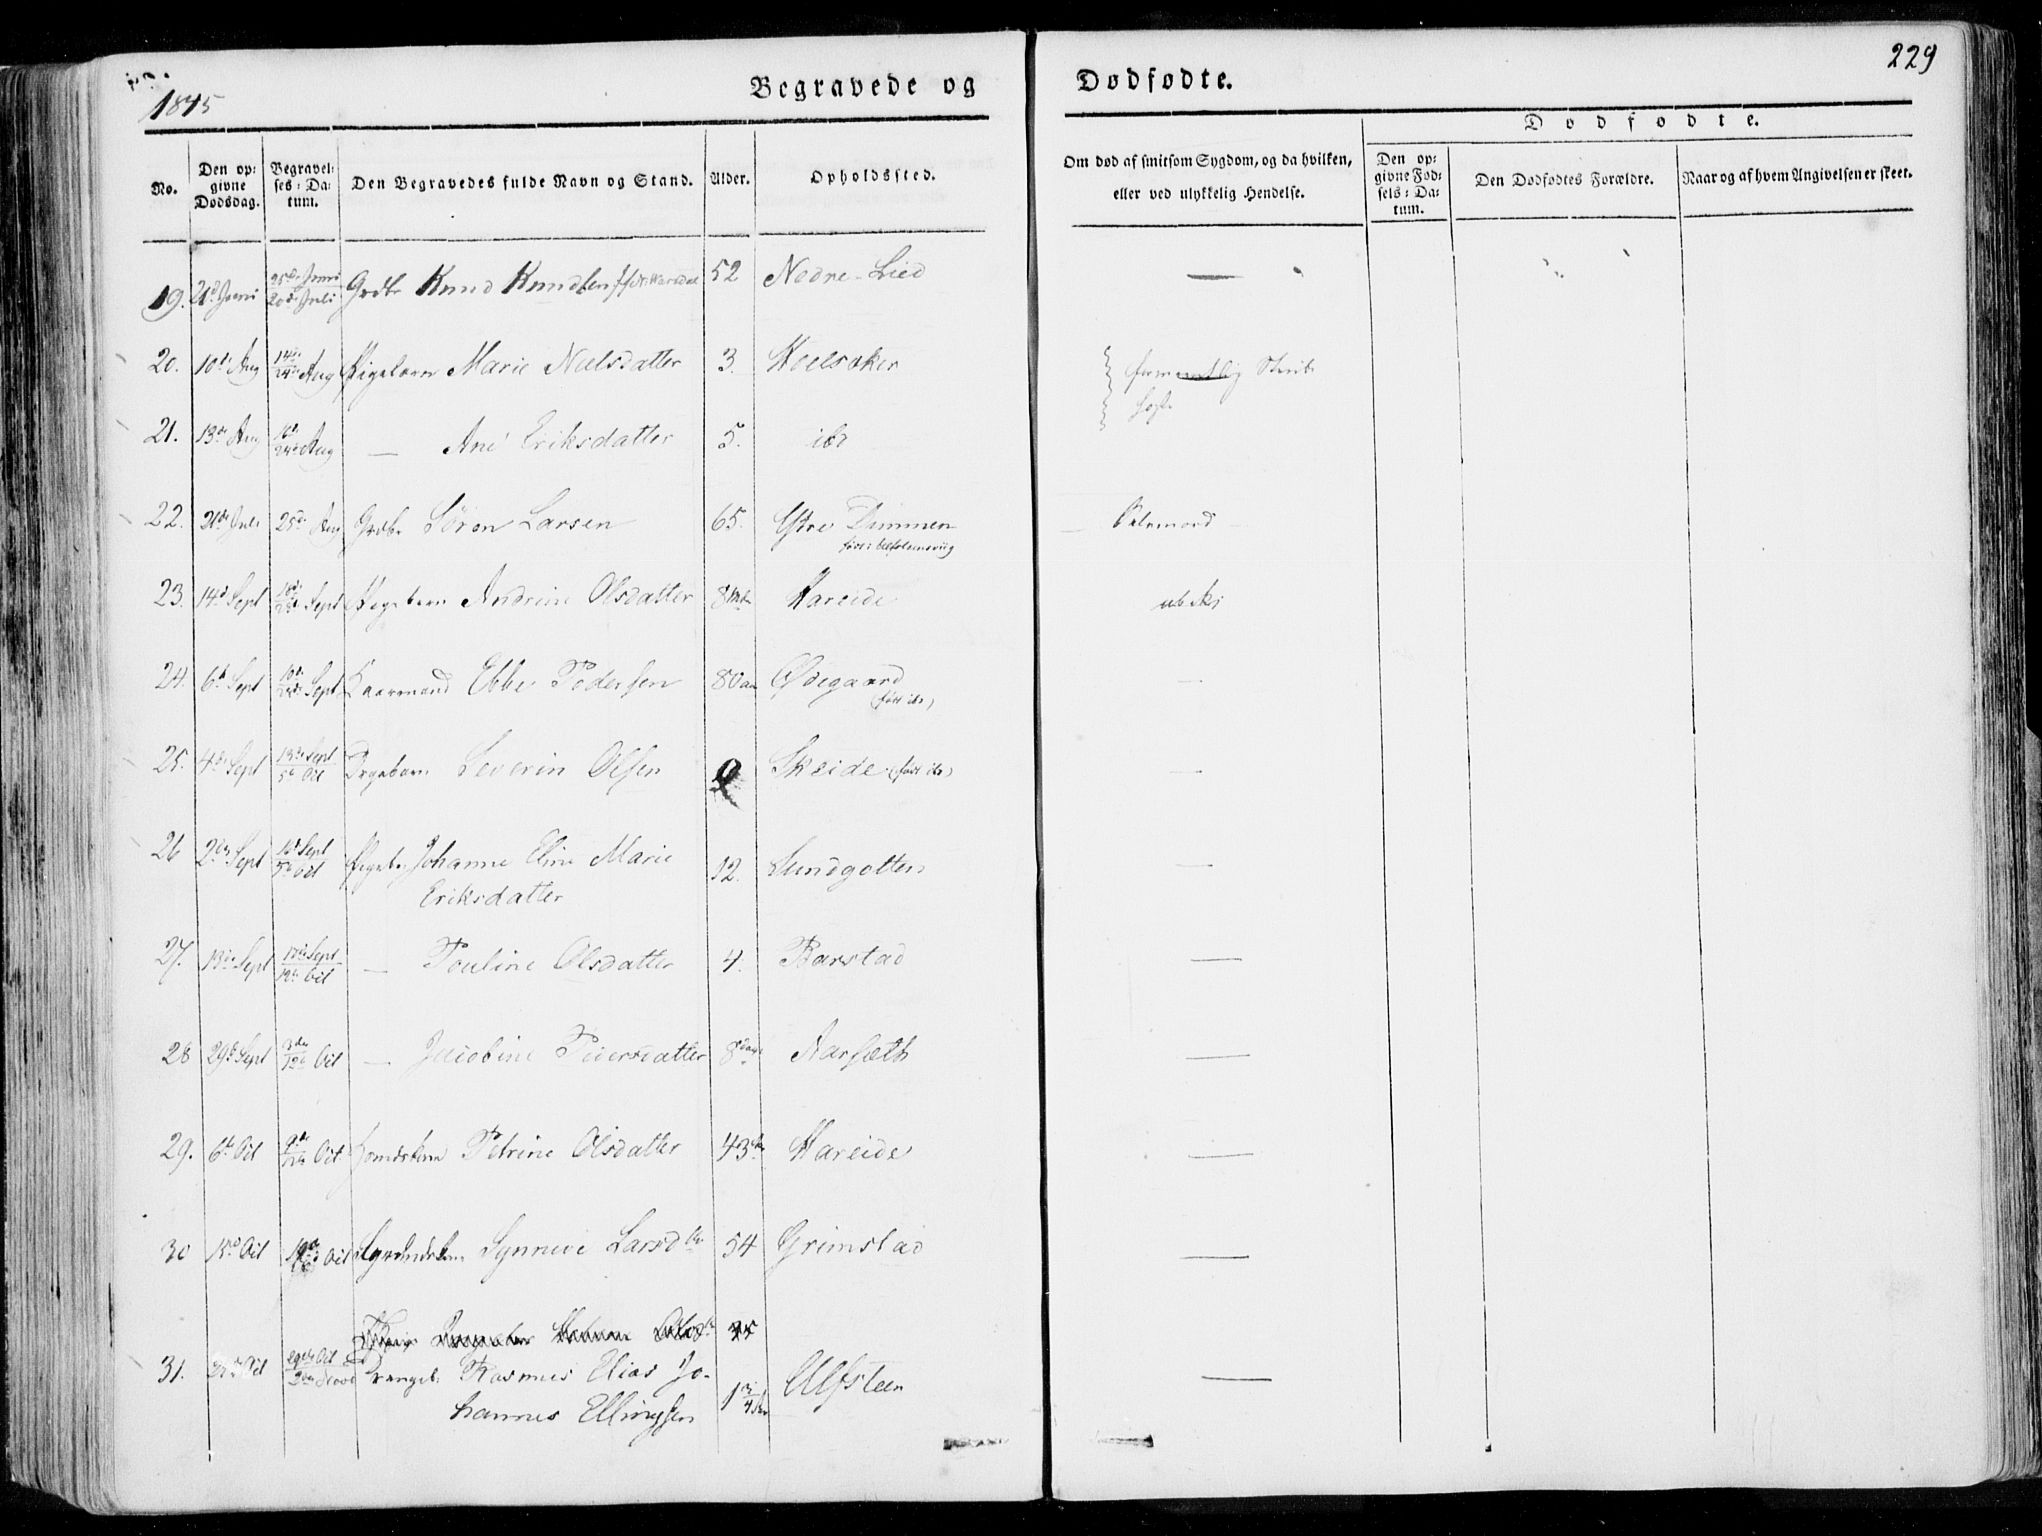 1845
Begravede og
Dødfødte.
229
No.
Den op-
givne
Dødsdag.
Begravel-
ses-Da-
tum.
Den Begravedes fulde Navn og Stand.
Alder.
Opholdssted.
Om død af smitsom Sygdom, og da hvilken,
eller ved ulykkelig Hendelse.
Dødfødte.
Den op-
givne Fød-
sels-Da-
tum.
Den Dødfødtes Forældre.
Naar og af hvem Angivelsen er skeet.
19. 21d Juni 25de Juni 20de Juli Grdbr Knud Knudsen 52 Nedre-Lied
20. 10de Aug 14de 24de Aug Pigebarn Marie Nielsdatter 3. Hoelsaker
21. 13de Aug 24de Aug — Ane Eriksdatter 5. ibd
22. 21de Juli 25de Aug Grdbr Søren Larsen 65. Østre Dimmen
Selvmord
23. 14d Sept 18de Sept Pigebarn Andrine Olsdatter 8 Hareide
24. 6te Sept 10de Sept Kaarmand Ebbe Pedersen 80 Ødegaard
(født ibd)
25. 4de Sept 13de Sept 5te Oct Drgebarn Severin Olsen Skeide (født ibd)
26 2den Sept Sept 5te Oct Pigeb. Johanne Eline Marie 12. Sundgotten
Eriksdatter
27. 13de Sept 17de Sept 19de Oct — Pouline Olsdatter 4. Barstad
28 29de Sept 3die 19de Oct — Jacobine Pedersdatter 8 Dage Aarsæth
29. 6te Oct 9de Oct Petrine Olsdatter 43 Hareide
30 15de Oct 19de Oct Synneve Larsdtr 54 Grimstad
31. Oct Oct 2den Novb Drengeb. Rasmus Elias Jo- 1 3/4 Ulfsteen
hannes Ellingsen